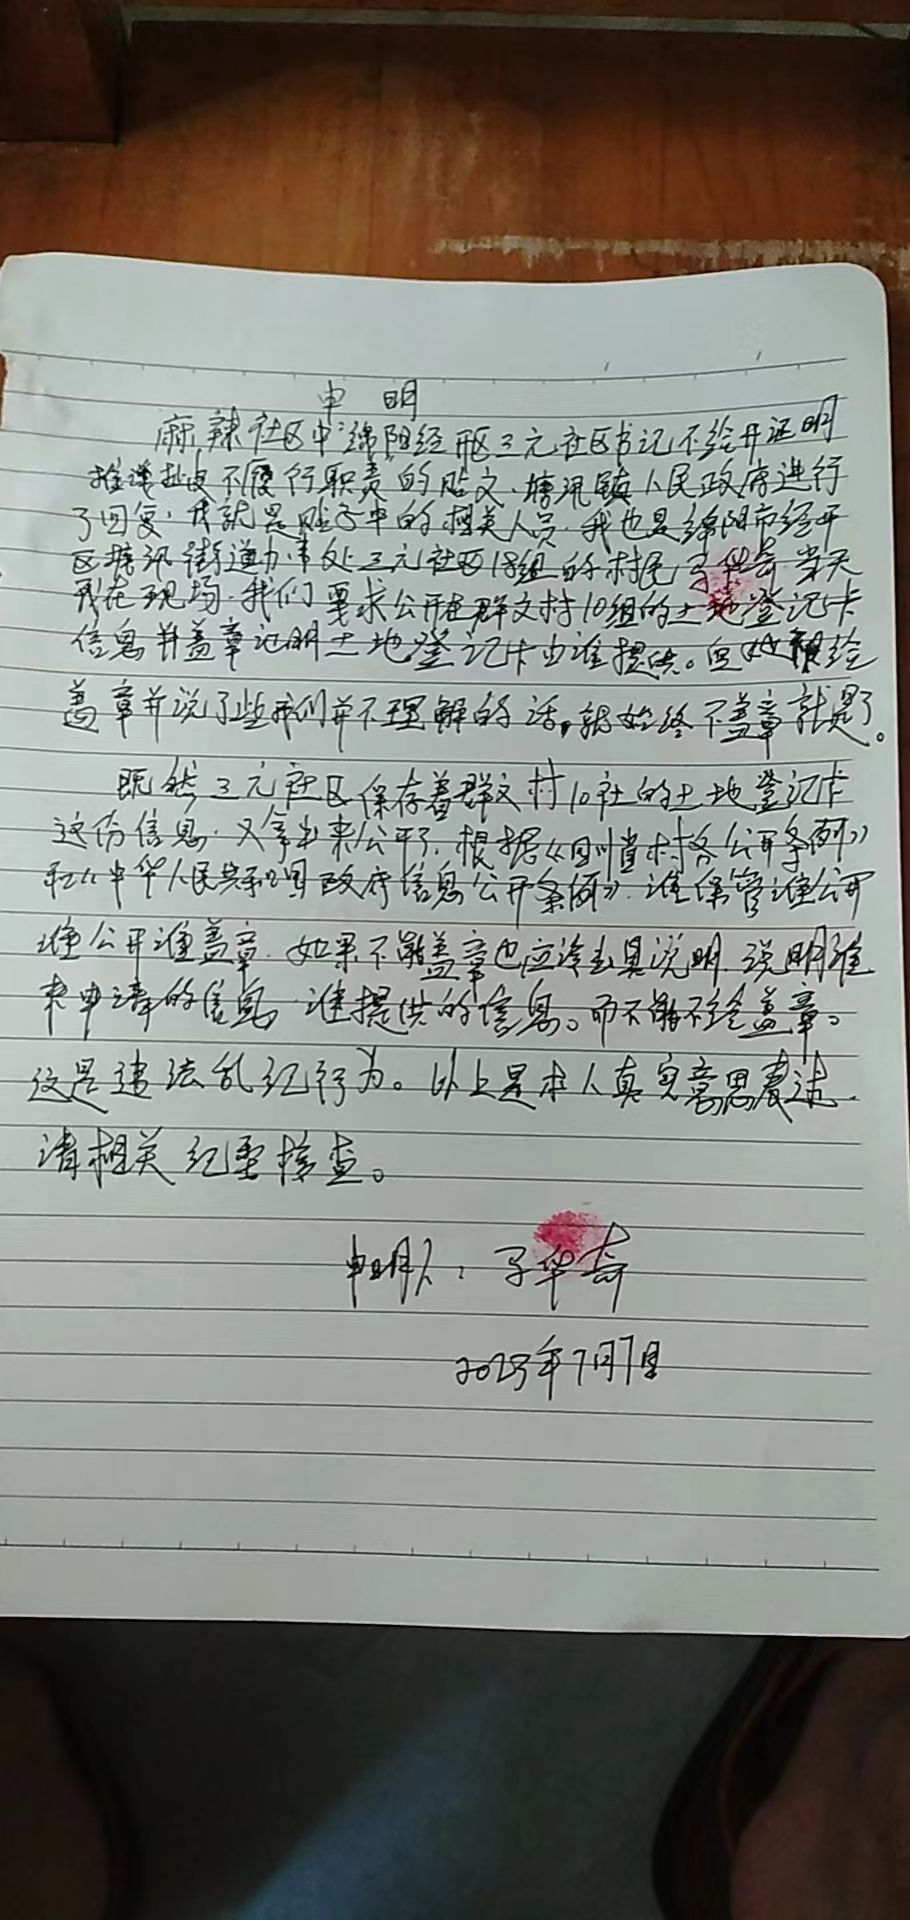 申明
麻辣社区中"绵阳经开区三元社区书记不给开证明
推诿扯皮不履行职责"的贴文、塘汛镇人民政府进行
了回复,我就是贴子中的相关人员.我也是绵阳市经开
区塘汛街道办事处三元社区18组的村民 华 当天
我在现场.我们要求公开在群文村10组的土地登记卡
信息并盖章证明土地登记卡由谁提供。但她 给
盖章并说了些我们并不理解的话,就始终不盖章就是了。
既然三元社区保存着群文村10社的土地登记卡
这份信息.又拿出来公开了.根据《四川省村务公开条例》
和《中华人民共和国政府信息公开条例》.谁保管谁公开
谁公开谁盖章.如果不能盖章也应该出具说明.说明谁
来申请的信息.谁提供的信息。而不能不给盖章。
这是违法乱纪行为。以上是本人真实意思表达.
请相关纪委核查。
申明人: 华
2023年7月7日